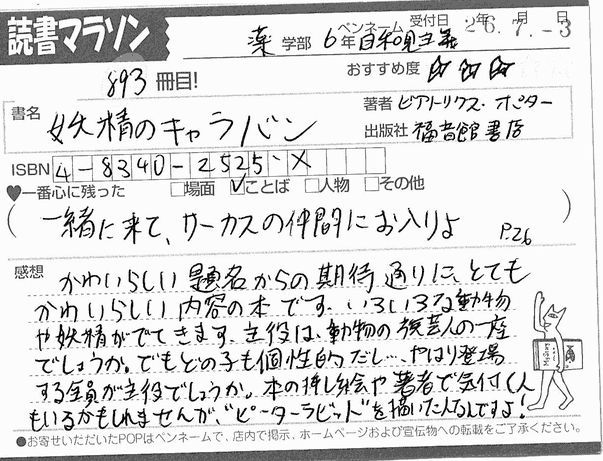 読書マラソン
薬 学部 6年 ペンネーム 自和唄主義 受付日 年 月 日 26.7.-3
893 冊目! おすすめ度 ☆☆☆
書名 妖精のキャラバン
著者 ビアトリクス・ポター
出版社 福音館書店
ISBN 4-8340-2525-X
♥一番心に残った □場面 ☑ことば □人物 □その他
(一緒に来て、サーカスの仲間にお入りよ P.26)
感想
かわいらしい題名からの期待通りに、とても
かわいらしい内容の本です。いろいろな動物
や妖精がでてきます。主役は、動物の旅芸人の一座
でしょうか。でもどの子も個性的だし…やはり登場
する全員が主役でしょうか。本の挿し絵や著者で気付く人
もいるかもしれませんが、"ピーターラビット"を描いた人なんですよ!
●お寄せいただいたPOPはペンネームで、店内で掲示、ホームページおよび宣伝物への転載をご了承ください。